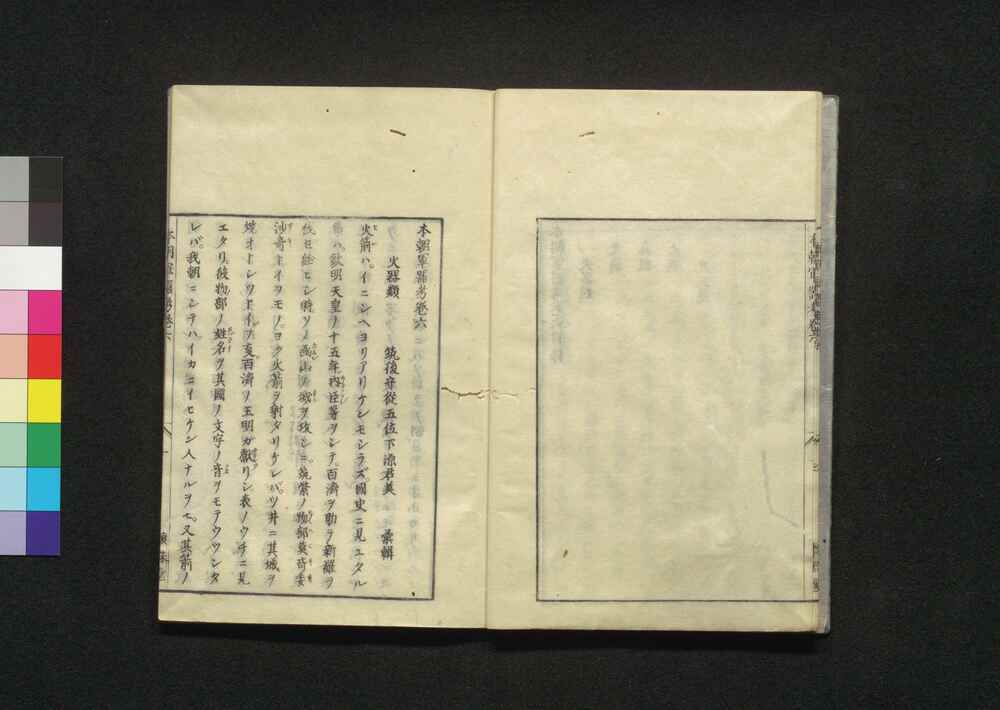 本朝軍器考卷六
火器類　筑後守從五位下源君美　彙輯
火箭ハ。イニシヘヨリアリケンモシラズ。國史ニ見ユタル
ハ欽明天皇ノ十五年内臣等ヲシテ。百濟ヲ助ケ新羅ヲ
伐セ給ヒシ時ソノ函山ノ城ヲ攻シニ。筑紫ノ物部莫奇委
沙奇トイヲモノ。ヨク火箭ヲ射タリケレバ。ツ井ニ其城ヲ
焼オトシツトイフ事。百濟ノ王明ガ獻リシ表ノウチニ見
エタリ。彼物部ノ姓名ヲ其國ノ文字ノ音ヲモテウツシタ
レバ。我朝ニシテハイカニイヒケン人ナルヲモ。又其箭ノ
本朝軍器考卷六